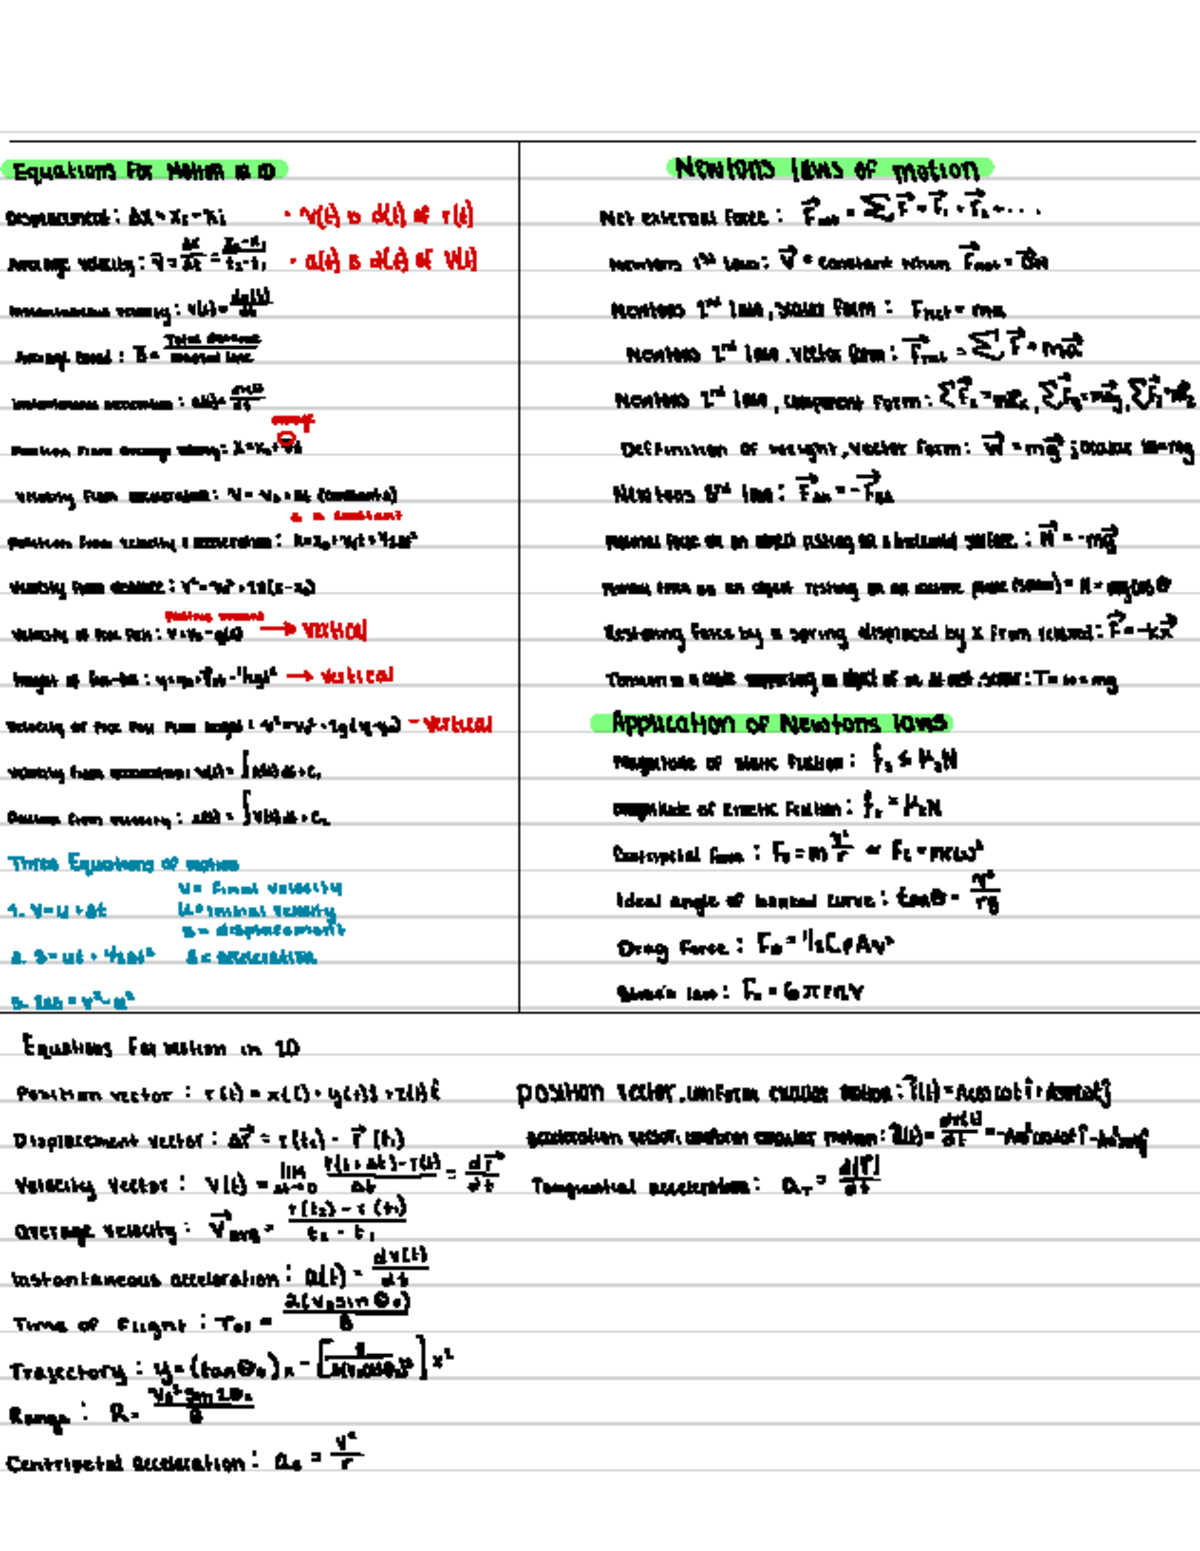 Equations For Motion in 1D
Displacement: Δx = x₂ - x₁
• v(t) is d(t) of r(t)
Average Velocity: v̄ = Δx/Δt = (x₂-x₁)/(t₂-t₁)
• a(t) is d(t) of v(t)
Instantaneous velocity: v(t) = dx(t)/dt
Average Speed: s̄ = Total distance/elapsed time
Instantaneous acceleration: a(t) = dv(t)/dt
Position from average velocity: x = x₀ + v̄t
Velocity from acceleration: v = v₀ + at (constant a)
a is constant
Position from velocity & acceleration: x = x₀ + v₀t + ½at²
Velocity from distance: v² = v₀² + 2a(x-x₀)
Velocity of free fall: v = v₀ - gt
→ vertical
Height of free fall: y = y₀ + v₀t - ½gt² → vertical
Velocity of free fall from height: v² = v₀² - 2g(y-y₀) - vertical
Velocity from acceleration: v(t) = ∫a(t)dt + C₁
Position from velocity: x(t) = ∫v(t)dt + C₂
Three Equations of motion
v = final velocity
1. v = u + at
u = initial velocity
s = displacement
2. s = ut + ½at²
a = acceleration
3. 2as = v² - u²
Newtons laws of motion
Net external Force: F⃗net = ΣF⃗ = F⃗₁ + F⃗₂ + ...
Newtons 1st law: v⃗ = constant when F⃗net = 0⃗N
Newtons 2nd law, scalar Form: Fnet = ma
Newtons 2nd law, vector form: F⃗net = ΣF⃗ = ma⃗
Newtons 2nd law, component Form:
Definition of weight, vector form: w⃗ = mg⃗; scalar w=mg
Newtons 3rd law: F⃗AB = -F⃗BA
Normal force on an object resting on a horizontal surface: N⃗ = -mg⃗
Normal force on an object resting on an incline plane = N = mgcosθ
Restoring Force by a spring displaced by x from relaxed: F⃗ = -kx⃗
Tension in a cable supporting an object of m at rest, scalar: T = w = mg
Application of Newtons laws
Magnitude of static Friction: fₛ ≤ μₛN
Magnitude of kinetic Friction: fₖ = μₖN
Centripetal force: Fc = m v²/r or Fc = mrω²
Ideal angle of banked curve: tanθ = v²/rg
Drag Force: FD = ½CρAv²
Stoke's law: Fs = 6πrηv
Equations For motion in 2D
Position vector: r(t) = x(t)î + y(t)ĵ + z(t)k̂
Displacement vector: Δr⃗ = r(t₂) - r⃗(t₁)
Velocity Vector: v(t) = lim Δt→0 (r(t+Δt) - r(t))/Δt = dr⃗/dt
average velocity: v⃗avg = (r(t₂) - r(t₁))/(t₂ - t₁)
Instantaneous acceleration: a(t) = dv(t)/dt
Time of Flight: Tof = 2(v₀sinθ₀)/g
Trajectory: y = (tanθ₀)x - [g/2(v₀cosθ₀)²]x²
Range: R = v₀²sin2θ₀/g
Centripetal acceleration: ac = v²/r
position vector, uniform circular motion: r⃗(t) = Acosωtî + Asinωtĵ
acceleration vector, uniform circular motion: a⃗(t) = dv(t)/dt = -Aω²cosωtî - Aω²sinωtĵ
Tangential acceleration: aT = d|v⃗|/dt